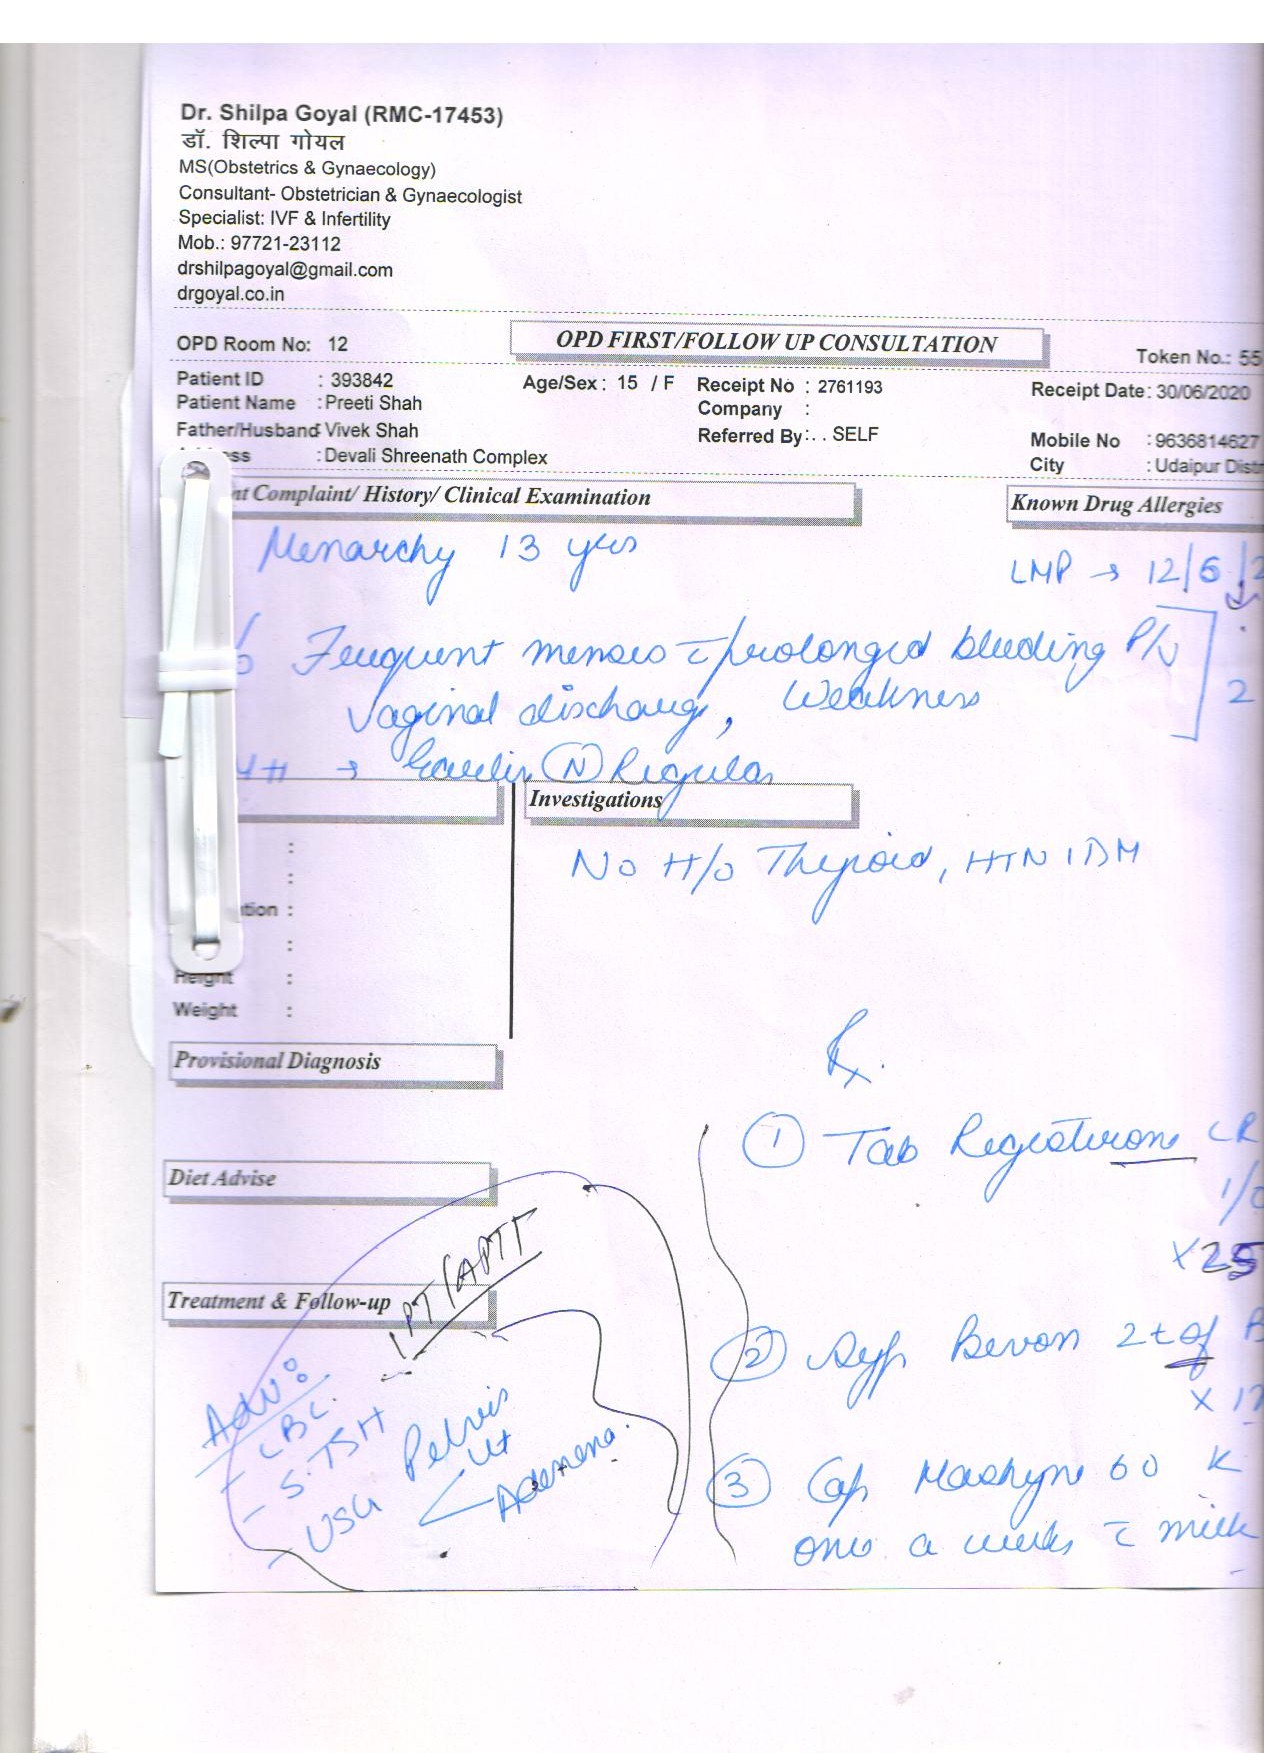 Dr. Shilpa Goyal (RMC-17453)
डॉ. शिल्पा गोयल
MS(Obstetrics & Gynaecology)
Consultant- Obstetrician & Gynaecologist
Specialist: IVF & Infertility
Mob.: 97721-23112
drshilpagoyal@gmail.com
drgoyal.co.in
OPD Room No: 12
OPD FIRST/FOLLOW UP CONSULTATION
Token No.: 55
Patient ID : 393842 Age/Sex : 15 / F Receipt No : 2761193 Receipt Date : 30/06/2020
Patient Name : Preeti Shah Company :
Father/Husband : Vivek Shah Referred By : . . SELF Mobile No : 9636814627
: Devali Shreenath Complex City : Udaipur
Complaint/ History/ Clinical Examination Known Drug Allergies
Menarchy 13 yrs
LMP → 12/6/2
Frequent menses c̄ prolonged bleeding P/V
2
Vaginal discharge, Weakness
→ (N) Regular
Investigations
:
No H/o Thyroid, HTN, DM
:
:
:
Height :
Weight :
Rx.
Provisional Diagnosis
① Tab Regesterone CR
1/0
Diet Advise
x 25
PT/APTT
Treatment & Follow-up
② Syp Bevon 2t of
x
Adv:
- CBC.
- S.TSH
- USG Pelvis
Ut
③ Cap 60 K
once a week c̄ milk